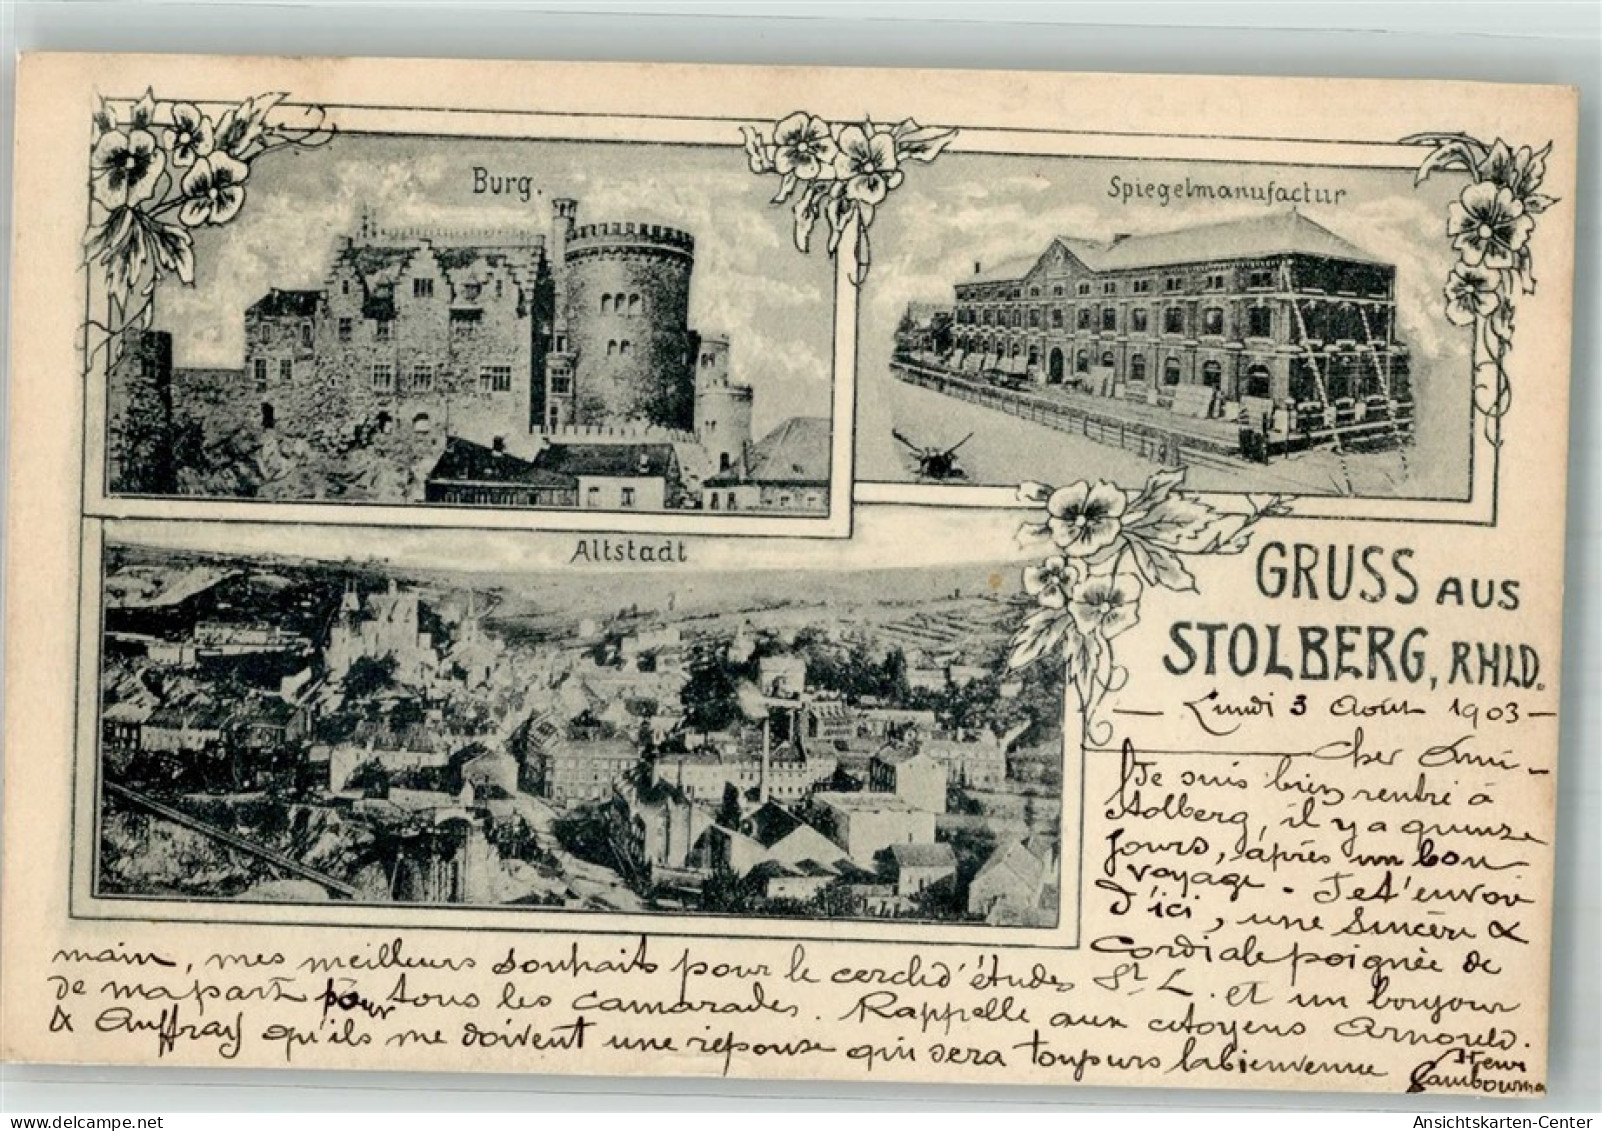 Burg.
Spiegelmanufactur
Altstadt
GRUSS AUS
STOLBERG, RHLD.
— Lundi 3 Août 1903 —
Cher Ami —
Je suis bien rentré à
Stolberg, il y a quinze
jours, après un bon
voyage. Je t'envoie
d'ici, une sincère &
cordiale poignée de
main, mes meilleurs souhaits pour le cercle d'études St L. et un bonjour
de ma part pour tous les camarades. Rappelle aux citoyens Arnould.
& Auffray qu'ils me doivent une réponse qui sera toujours la bienvenue
Henri
Ansichtskarten-Center